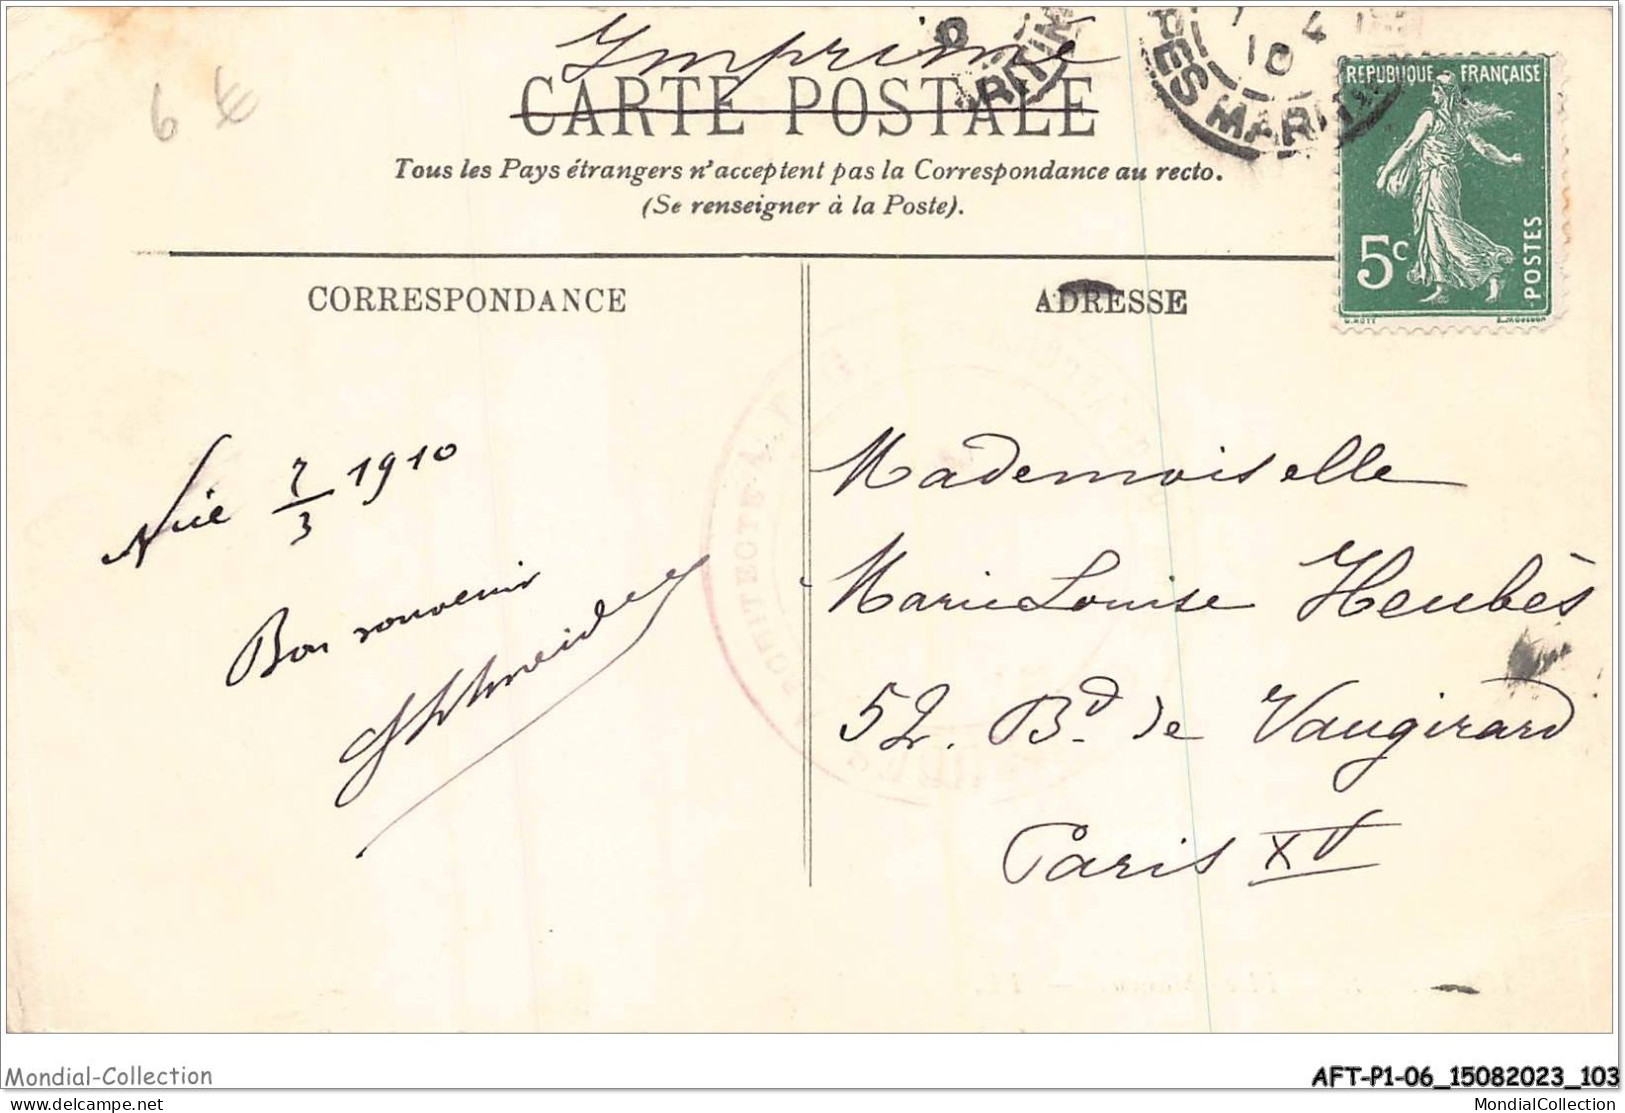 Imprimé
CARTE POSTALE
Tous les Pays étrangers n'acceptent pas la Correspondance au recto.
(Se renseigner à la Poste).
6 €
PES MARIT
RITIM
10 4
REPUBLIQUE FRANÇAISE
5c
POSTES
O. ROTY
E. MOUCHON
CORRESPONDANCE
ADRESSE
Nice 7/3 1910
Bon souvenir
Mademoiselle
Marie Louise Heubès
52. Bd. de Vaugirard
Paris XV
Mondial-Collection
AFT-P1-06_15082023_103
delcampe.net
MondialCollection